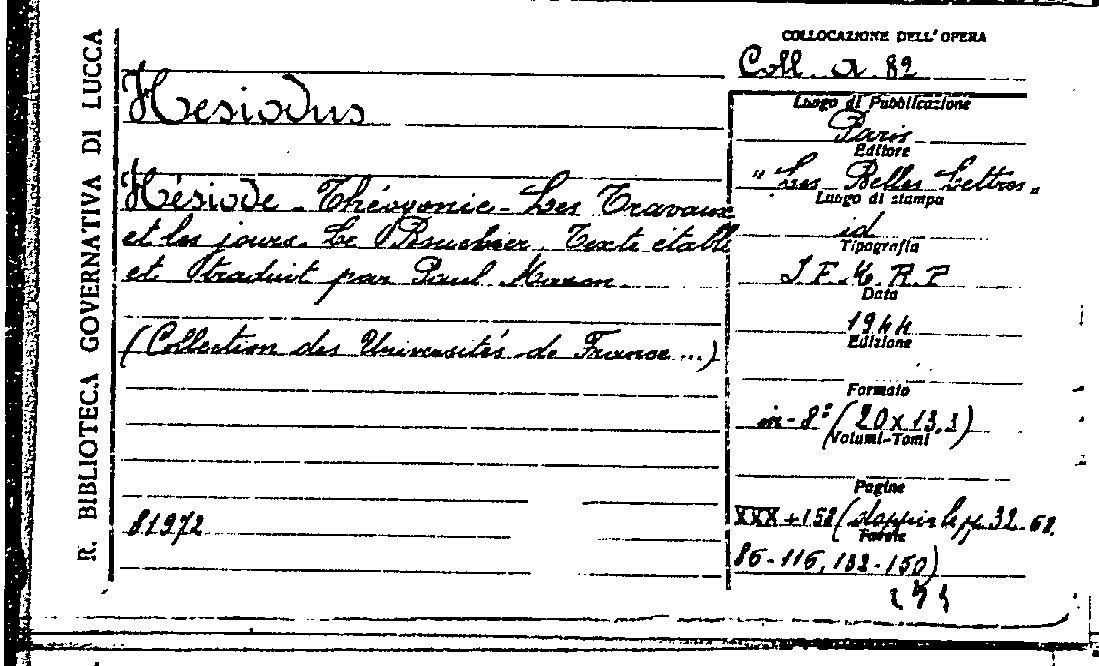 R. BIBLIOTECA GOVERNATIVA DI LUCCA
COLLOCAZIONE DELL'OPERA
Coll. A. 82
Hesiodus
Luogo di Pubblicazione
Paris
Editore
"Les Belles Lettres"
Luogo di stampa
id
Tipografia
Data
1944
Edizione
Formato
in-8° (20 x 13,3)
Volumi-Tomi
Pagine
XXX + 158 (doppie le pp. 32-68.
Tavole
86-116, 132-150)
Hésiode - Théogonie - Les Travaux
et les jours. Le Bouclier. Texte établi
et traduit par Paul Mazon
(Collection des Universités de France...)
81972